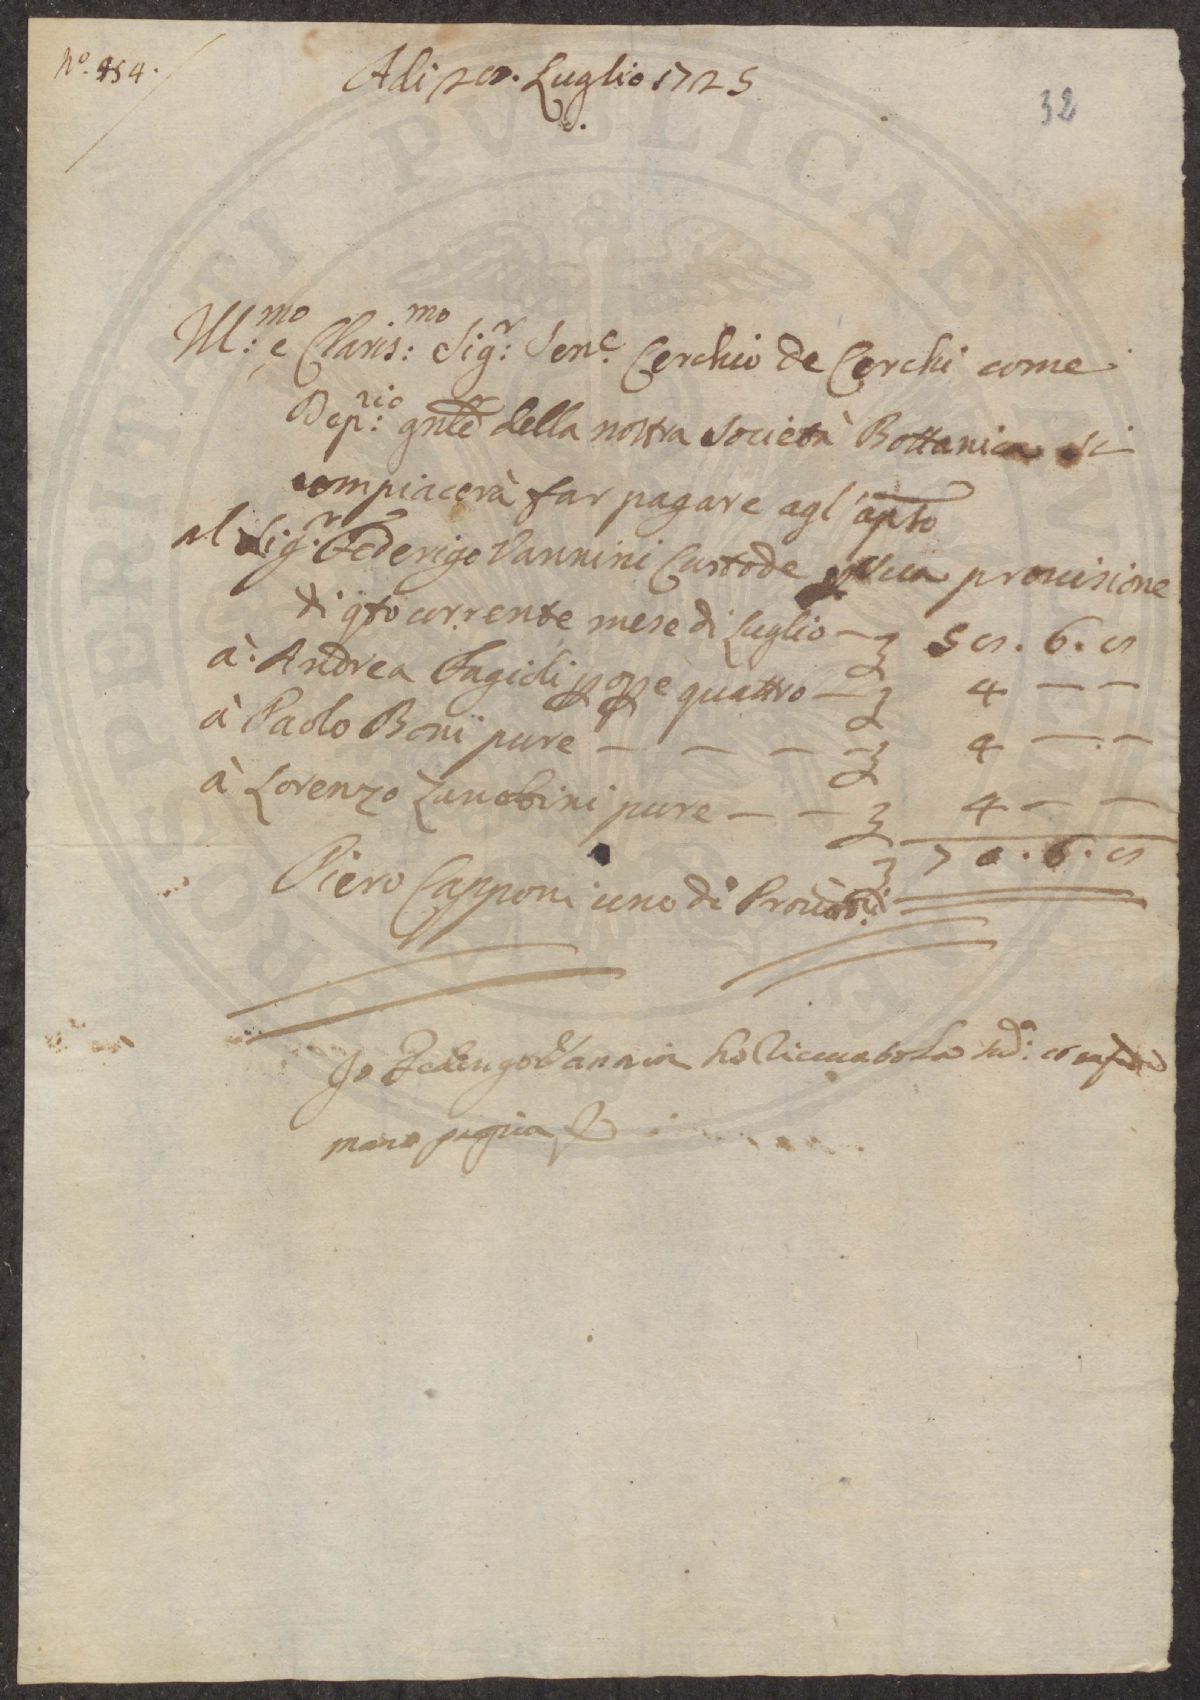 N.o 454.
Adi 20. Luglio 1725
32
Ill:mo e Claris:mo Sig:r Sen.e Cerchio de Cerchi come
Dep:rio gnle della nostra Società Bottanica si
compiacerà far pagare agl'apto
al Sig.r Federigo Vannini Custode sua provisione
di qto corrente mese di Luglio — 50. 6. 0
à Andrea Fagioli quattro — 4 — —
à Paolo Boni pure — — — — 4 — —
à Lorenzo Zanobini pure — — 4 — —
70. 6. 0
Piero Capponi uno di
Io Federigo Vannini ho Riceuto la Sud:a
mano propria
PROSPERITATI PVBLICAE